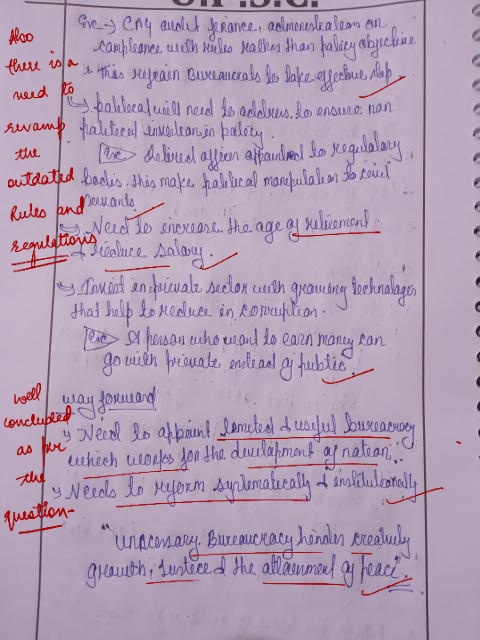 U.P.S.C.
Exc → CAG audit finance, administration on
compliance with rules rather than policy objective
This refrain Bureaucrats to take effective step
→ political will need to address to ensure non
political intention in policy.
Exc Retired officer appointed to regulatory
bodies. this make political manipulation to civil
servants.
→ Need to increase the age of retirement
& reduce salary.
→ Invest in private sector with growing technologies
that help to reduce in corruption.
Exc A person who want to earn money can
go with private instead of public.
way forward
→ Need to appoint limited & useful bureacracy
which works for the development of nation.
→ Needs to reform systematically & institutionally
"Unnecessary Bureaucracy hinders creativity
growth, Justice & the attainment of peace".
Also
there is a
need to
revamp
the
outdated
Rules and
regulations
well
concluded
as per
the
question